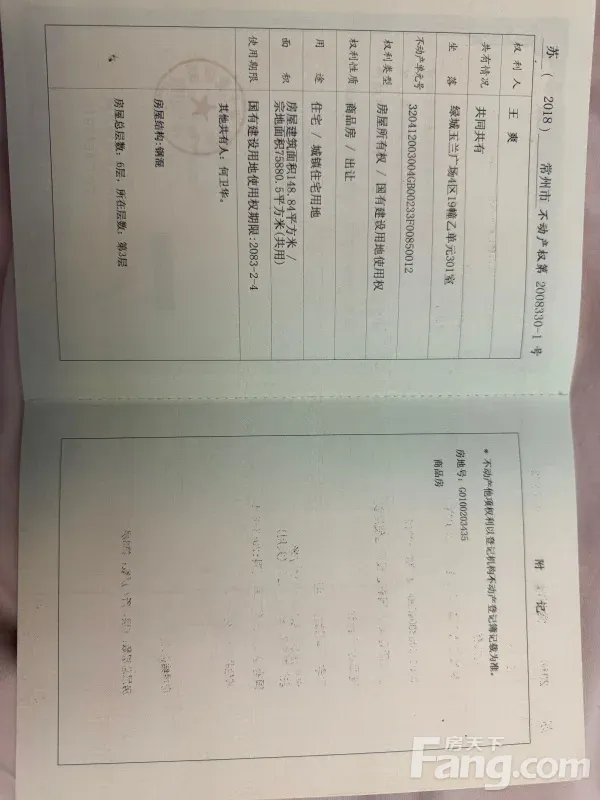 苏 ( 2018 ) 常州市 不动产权第 2008330-1 号
权利人 王爽
共有情况 共同共有
坐落 绿城玉兰广场4区19幢乙单元301室
不动产单元号 320412003004GB00233F00850012
权利类型 房屋所有权 / 国有建设用地使用权
权利性质 商品房 / 出让
用途 住宅 / 城镇住宅用地
面积 房屋建筑面积148.84平方米 /
宗地面积75880.5平方米(共用)
使用期限 国有建设用地使用权期限:2083-2-4
其他共有人: 何卫华。
房屋结构:钢混
房屋总层数: 6层, 所在层数: 第3层
附 记
* 不动产他项权利以登记机构不动产登记簿记载为准。
房地号: G0100203435
商品房
房天下
Fang.com